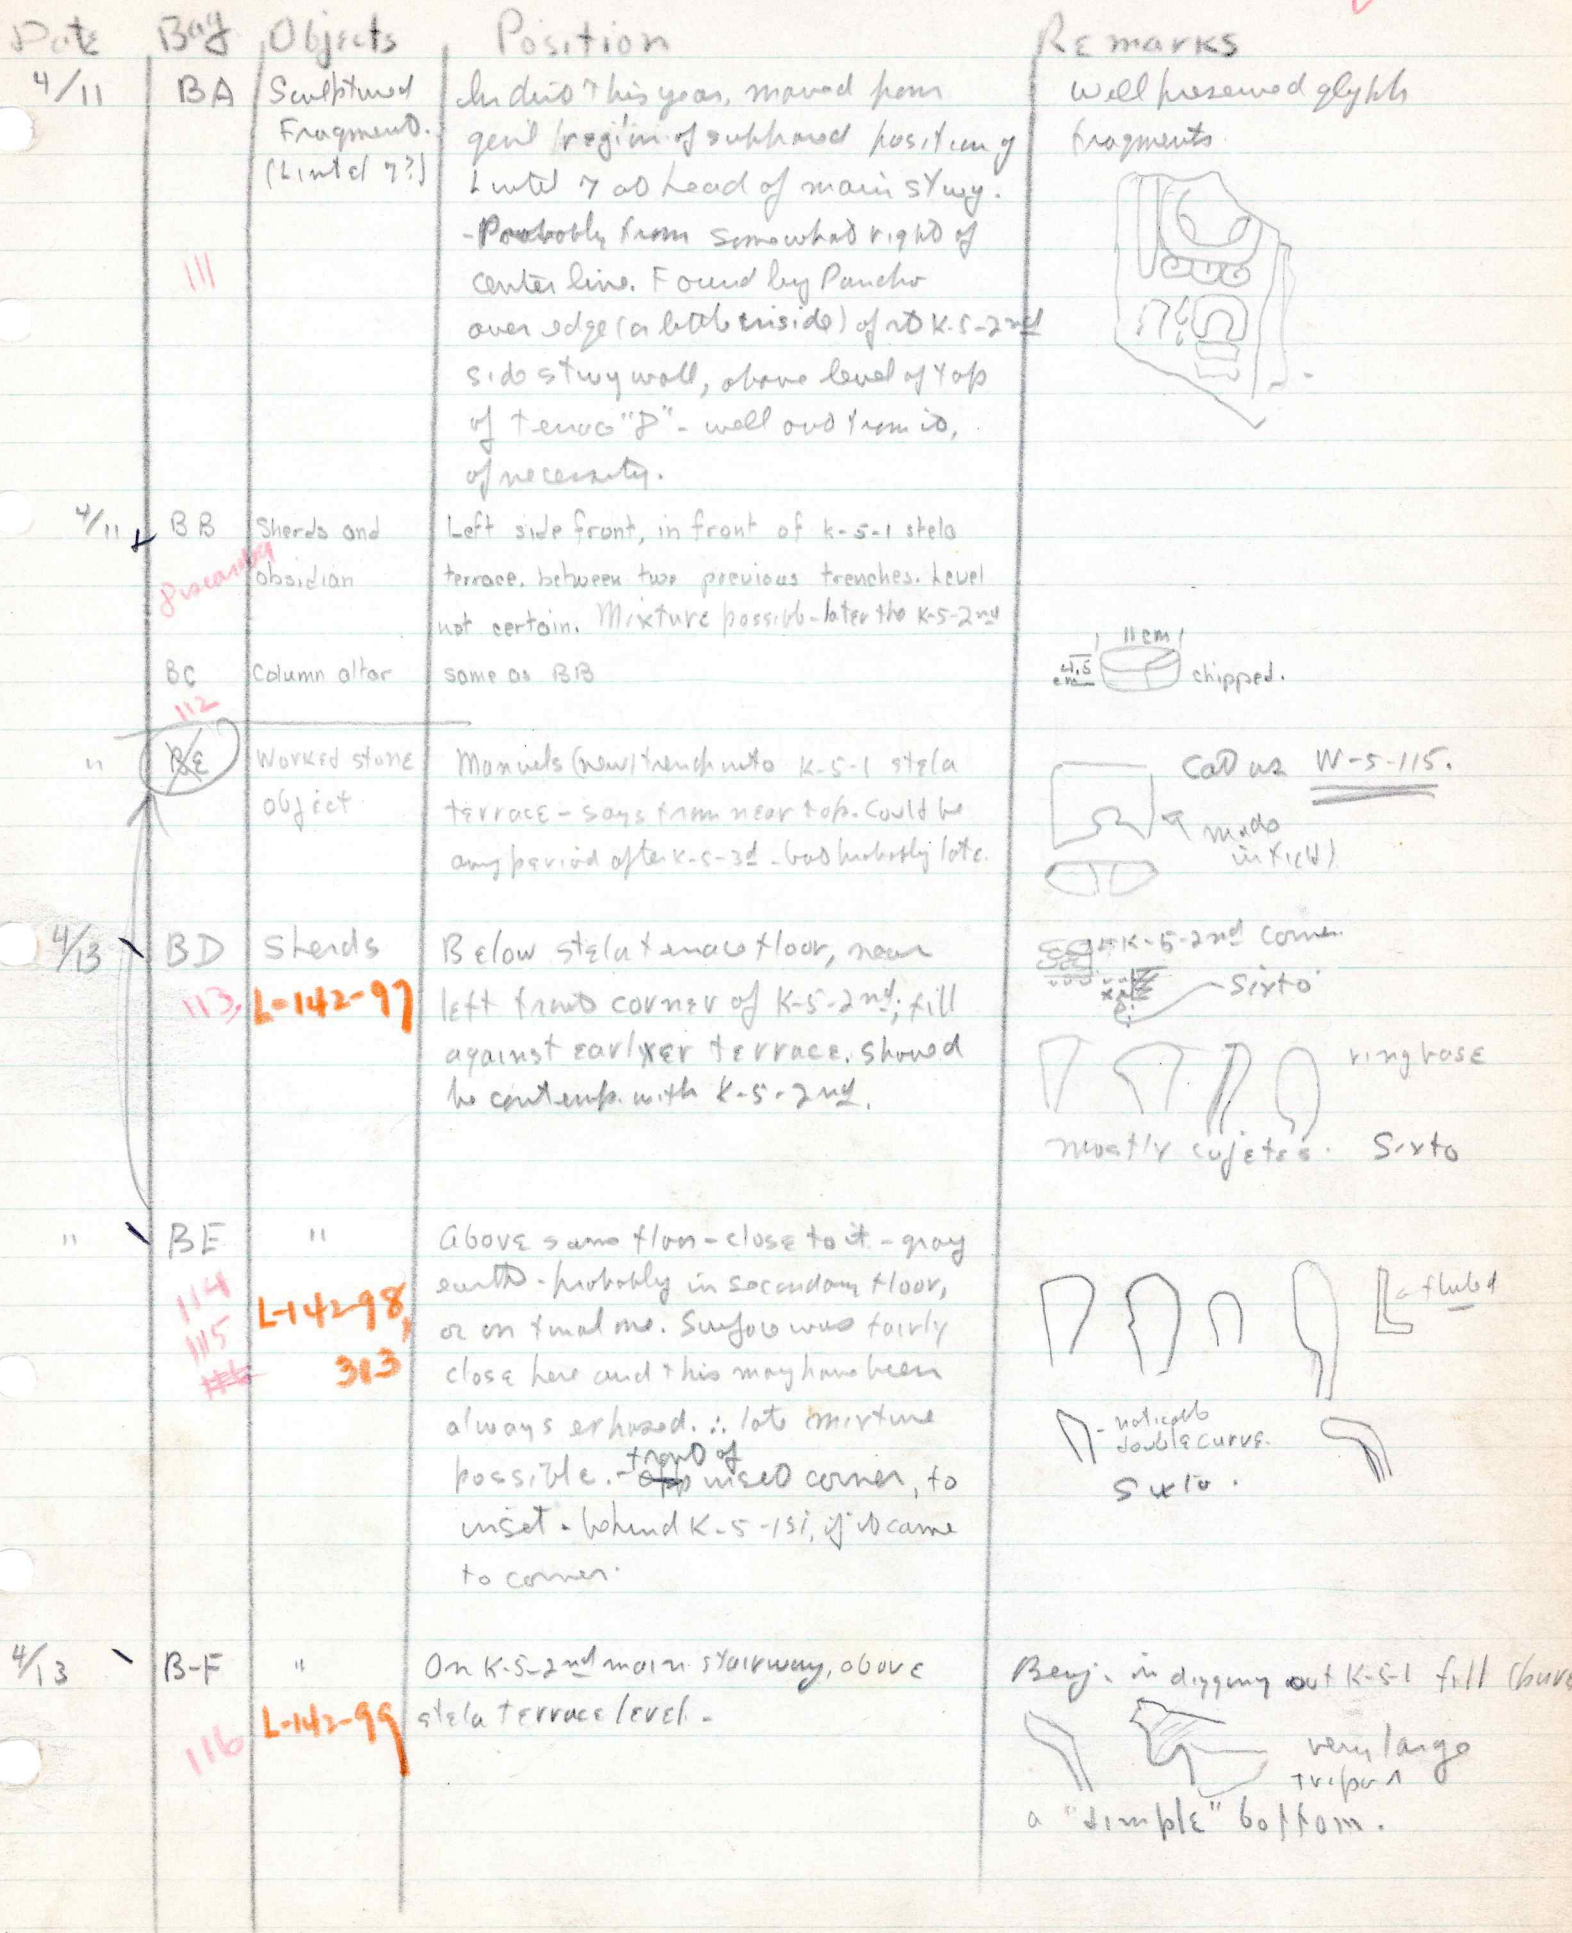 Date Bag Objects Position Remarks
4/11 BA Sculptured Fragment. (Lintel 7?)
111
In dirt this year, moved from
gen'l region of supposed position of
Lintel 7 at head of main stwy.
- Probably from somewhat right of
center line. Found by Pancho
over edge (a little inside) of rt K-5-2nd
side stwy wall, above level of top
of terrace "B" - well out from it,
of necessity.
well preserved glyph
fragments.
4/11 BB Sherds and
obsidian
Left side front, in front of K-5-1 stela
terrace, between two previous trenches. Level
not certain. Mixture possible - later tho K-5-2nd
BC Column altar same as BB
112
11 cm
4.5
cm
chipped.
" BE Worked stone
object
Manuels (new) trench into K-5-1 stela
terrace - says from near top. Could be
any period after K-5-3d - but probably late.
Cat as W-5-115.
made
in field)
4/13 BD Sherds
113, L-142-97
Below stela terrace floor, near
left front corner of K-5-2nd; fill
against earlier terrace. Should
be contemp. with K-5-2nd.
K-5-2nd corner.
Sixto
ring base
mostly cujetes. Sixto
" BE "
114
115
L-142-98,
313
Above same floor - close to it - gray
earth - probably in secondary floor,
or on final one. Surface was fairly
close here and this may have been
always exposed. ∴ late mixture
possible. - front of inset corner, to
inset - behind K-5-1st, if it came
to corner.
fluted
- noticable
double curve.
Sixto.
4/13 B-F "
116 L-142-99
On K-5-2nd main stairway, above
stela terrace level.
Benj. in digging out K-5-1 fill
very large
tripod
a "simple" bottom.